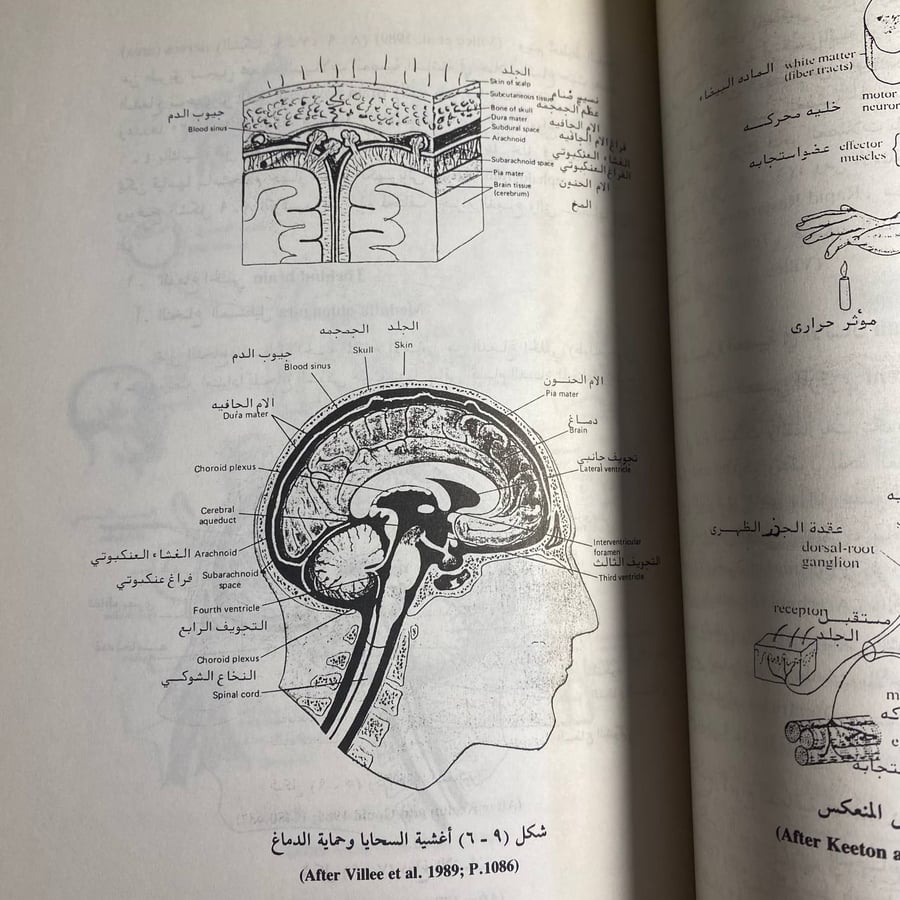 الجلد
Skin of scalp
Subcutaneous tissue
عظم الجمجمه
Bone of skull
الام الجافيه
Dura mater
فراغ الام الجافيه
Subdural space
الغشاء العنكبوتي
Arachnoid
الفراغ العنكبوتي
Subarachnoid space
الام الحنون
Pia mater
Brain tissue
(cerebrum)
المخ
جيوب الدم
Blood sinus
الجلد
Skin
الجمجمه
Skull
جيوب الدم
Blood sinus
الام الجافيه
Dura mater
Choroid plexus
Cerebral
aqueduct
الغشاء العنكبوتي Arachnoid
فراغ عنكبوتي Subarachnoid
space
Fourth ventricle
التجويف الرابع
Choroid plexus
النخاع الشوكي
Spinal cord
الام الحنون
Pia mater
دماغ
Brain
تجويف جانبي
Lateral ventricle
Interventricular
foramen
التجويف الثالث
Third ventricle
شكل (٩ - ٦) أغشية السحايا وحماية الدماغ
(After Villee et al. 1989; P.1086)
الماده البيضاء white matter
(fiber tracts)
خليه محركه motor
neuron
عضو استجابه effector
muscles
مؤثر حراري
عقدة الجزر الظهري
dorsal-root
ganglion
receptor
مستقبل
الجلد
المنعكس
(After Keeton